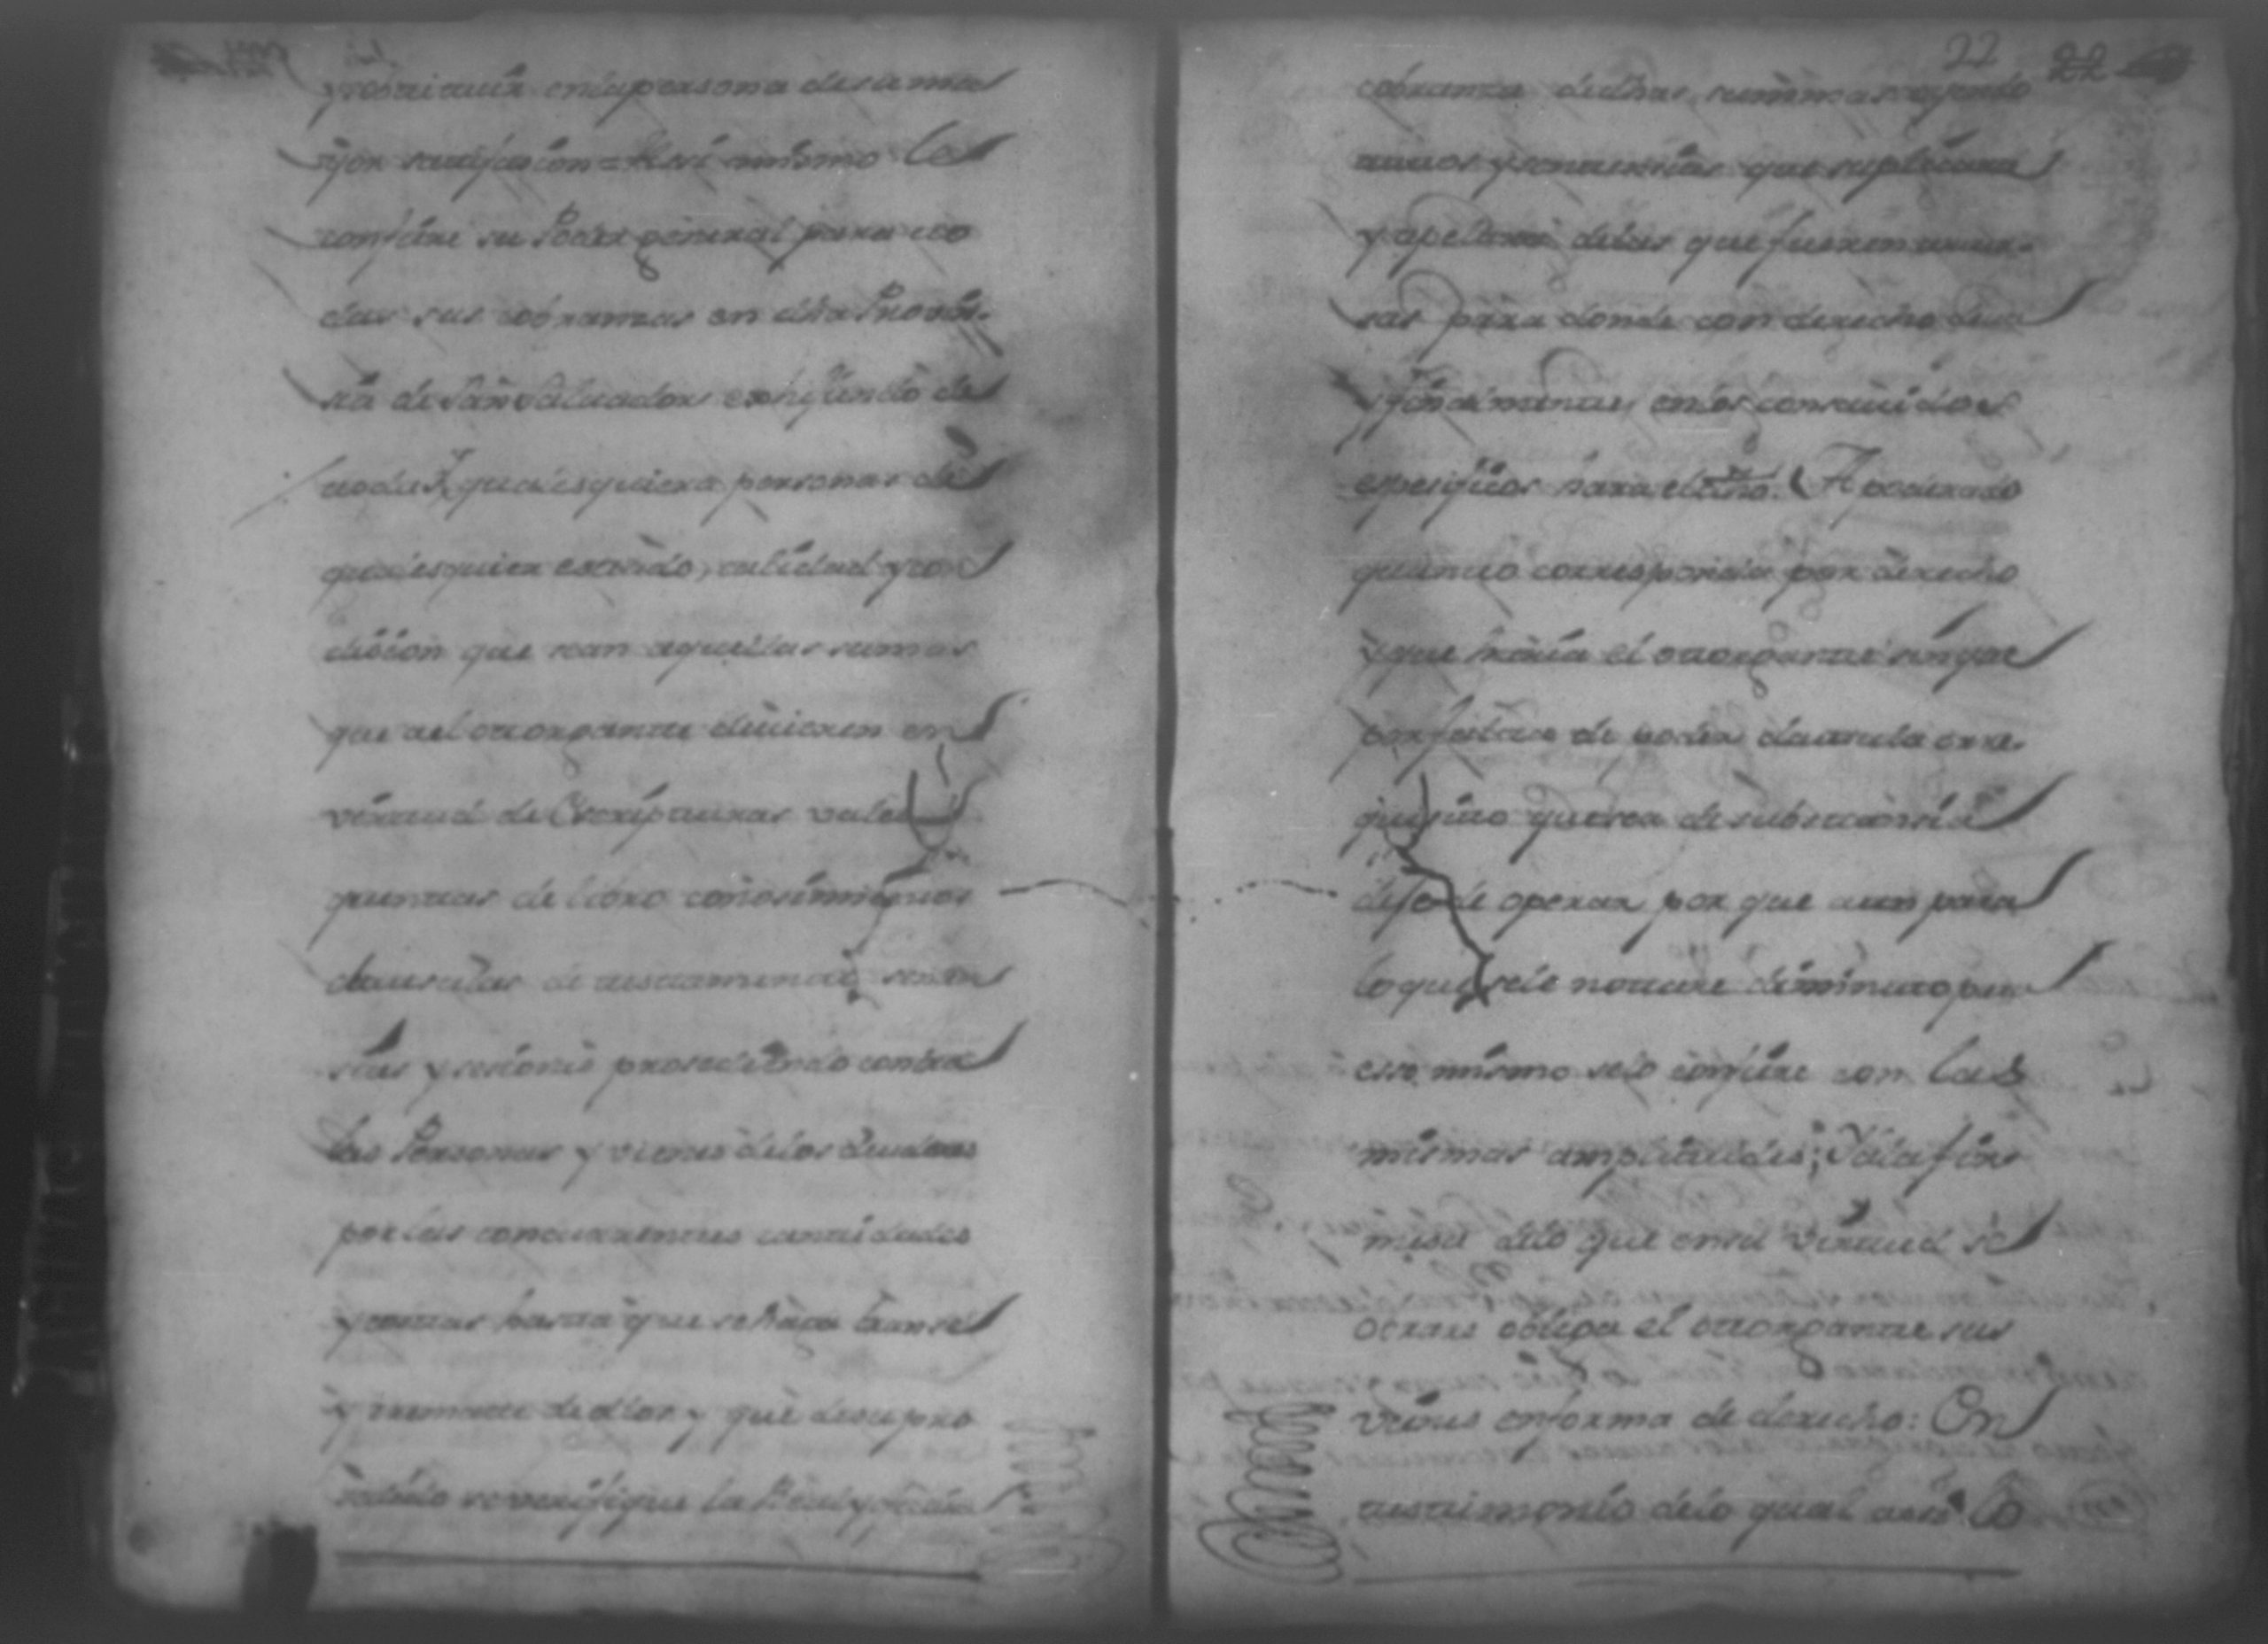 y sostituir en la persona de su ma
ijor satisfasion = Assi mismo le
confiere su Poder general para to
das sus cobranzas en dha Provin.
sia de San Salvador exhijiendo de
todas, y qualesquiera personas de
qualesquier estado, calidad y con
dision que sean aquellas sumas
que ael otorgante devieren en
virtud de Escripturas vales
quentas de libro conosimientos
clausulas de testamento senten
sias y sesiones prosediendo contra
las Personas y vienes delos deudores
por las concurrentes cantidades
y costas hasta que se haga transe
y remate de ellos y que de su pro
ducido severifique la Real y
22 22
cobranza de dhas summas oyendo
autos y sentensias que suplicara
y apelara delas que fueren adver.
sas para donde con derecho deva
y finalmente, enlos constituidos
espesificos para el dho. Apoderado
quanto corresponda por derecho
y que haria el otorgante sin que
por falta de poder clausula o re.
quisito que sea de substansia
deje de operar por que aun para
lo que sele notare diminuto para
esso mismo selo confiere con las
mismas amplitudes; Yala fir
mesa delo que en su virtud se
obrare obliga el otorgante sus
vienes en forma de derecho: En
testimonio delo qual assi lo